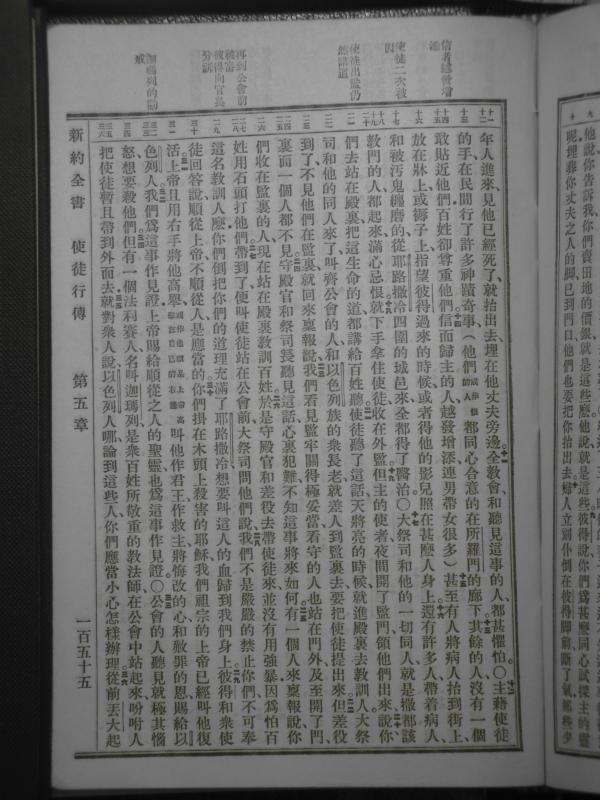 他說你告訴我你們賣田地的價銀就是這些麼他說就是這些彼得說你們爲甚麼同心試探主的靈
呢埋葬你丈夫之人的脚已到門口他們也要把你抬出去婦人立刻仆倒在彼得脚前斷了氣那些少
信者越發增
使徒二次被囚
使徒出監仍然講道
再到公會前被審
彼得向官長分訴
迦瑪列的勸戒
年人進來見他已經死了就抬出去埋在他丈夫旁邊全教會和聽見這事的人都甚懼怕〇主藉使徒
的手在民間行了許多神蹟奇事(他們都同心合意的在所羅門的廊下其餘的人沒有一個
敢貼近他們百姓卻尊重他們信而歸主的人越發增添連男帶女很多)甚至有人將病人抬到街上
放在牀上或褥子上指望彼得過來的時候或者得他的影兒照在甚麼人身上還有許多人帶着病人
和被汚鬼纏磨的從耶路撒冷四圍的城邑來全都得了醫治〇大祭司和他的一切同人就是撒都該
教門的人都起來滿心忌恨就下手拿住使徒收在外監但主的使者夜間開了監門領他們出來說你
們去站在殿裏把這生命的道都講給百姓聽使徒聽了這話天將亮的時候就進殿裏去教訓人大祭
司和他的同人來了叫齊公會的人和以色列族的衆長老就差人到監裏去要把使徒提出來但差役
到了不見他們在監裏就回來稟報說我們看見監牢關得極妥當看守的人也站在門外及至開了門
裏面一個人都不見守殿官和祭司長聽見這話心裏犯難不知這事將來如何有一個人來稟報說你
們收在監裏的人現在站在殿裏教訓百姓於是守殿官和差役去帶使徒來並沒有用強暴因爲怕百
姓用石頭打他們帶到了便叫使徒站在公會前大祭司問他們說我們不是嚴嚴的禁止你們不可奉
這名教訓人麼你們倒把你們的道理充滿了耶路撒冷想要叫這人的血歸到我們身上彼得和衆使
徒回答說順從上帝不順從人是應當的你們掛在木頭上殺害的耶穌我們祖宗的上帝已經叫他復
活上帝且用右手將他高舉叫他作君王作救主將悔改的心和赦罪的恩賜給以
色列人我們爲這事作見證上帝賜給順從之人的聖靈也爲這事作見證〇公會的人聽見就極其惱
怒想要殺他們但有一個法利賽人名叫迦瑪列是衆百姓所敬重的教法師在公會中站起來吩咐人
把使徒暫且帶到外面去就對衆人說以色列人哪論到這些人你們應當小心怎樣辦理從前丟大起
新約全書 使徒行傳 第五章 一百五十五